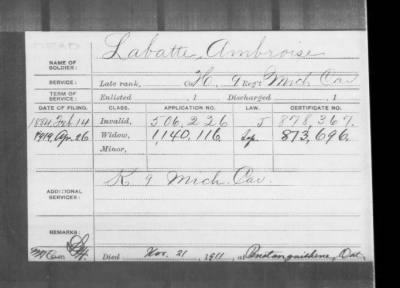 DEAD
NAME OF SOLDIER: Labatte, Ambroise
SERVICE: Late rank, Co. H, 9 Reg't Mich Cav
TERM OF SERVICE: Enlisted , 1 Discharged , 1
DATE OF FILING. CLASS. APPLICATION NO. LAW. CERTIFICATE NO.
1884. Feb 14 Invalid, 506,226 5 878,367.
1919. Apr. 26 Widow, 1,140,116 Sep. 873,696.
Minor,
ADDITIONAL SERVICES: K 9 Mich. Cav.
REMARKS:
Died Nov. 21, 1911, at Penetanguishene, Ont.